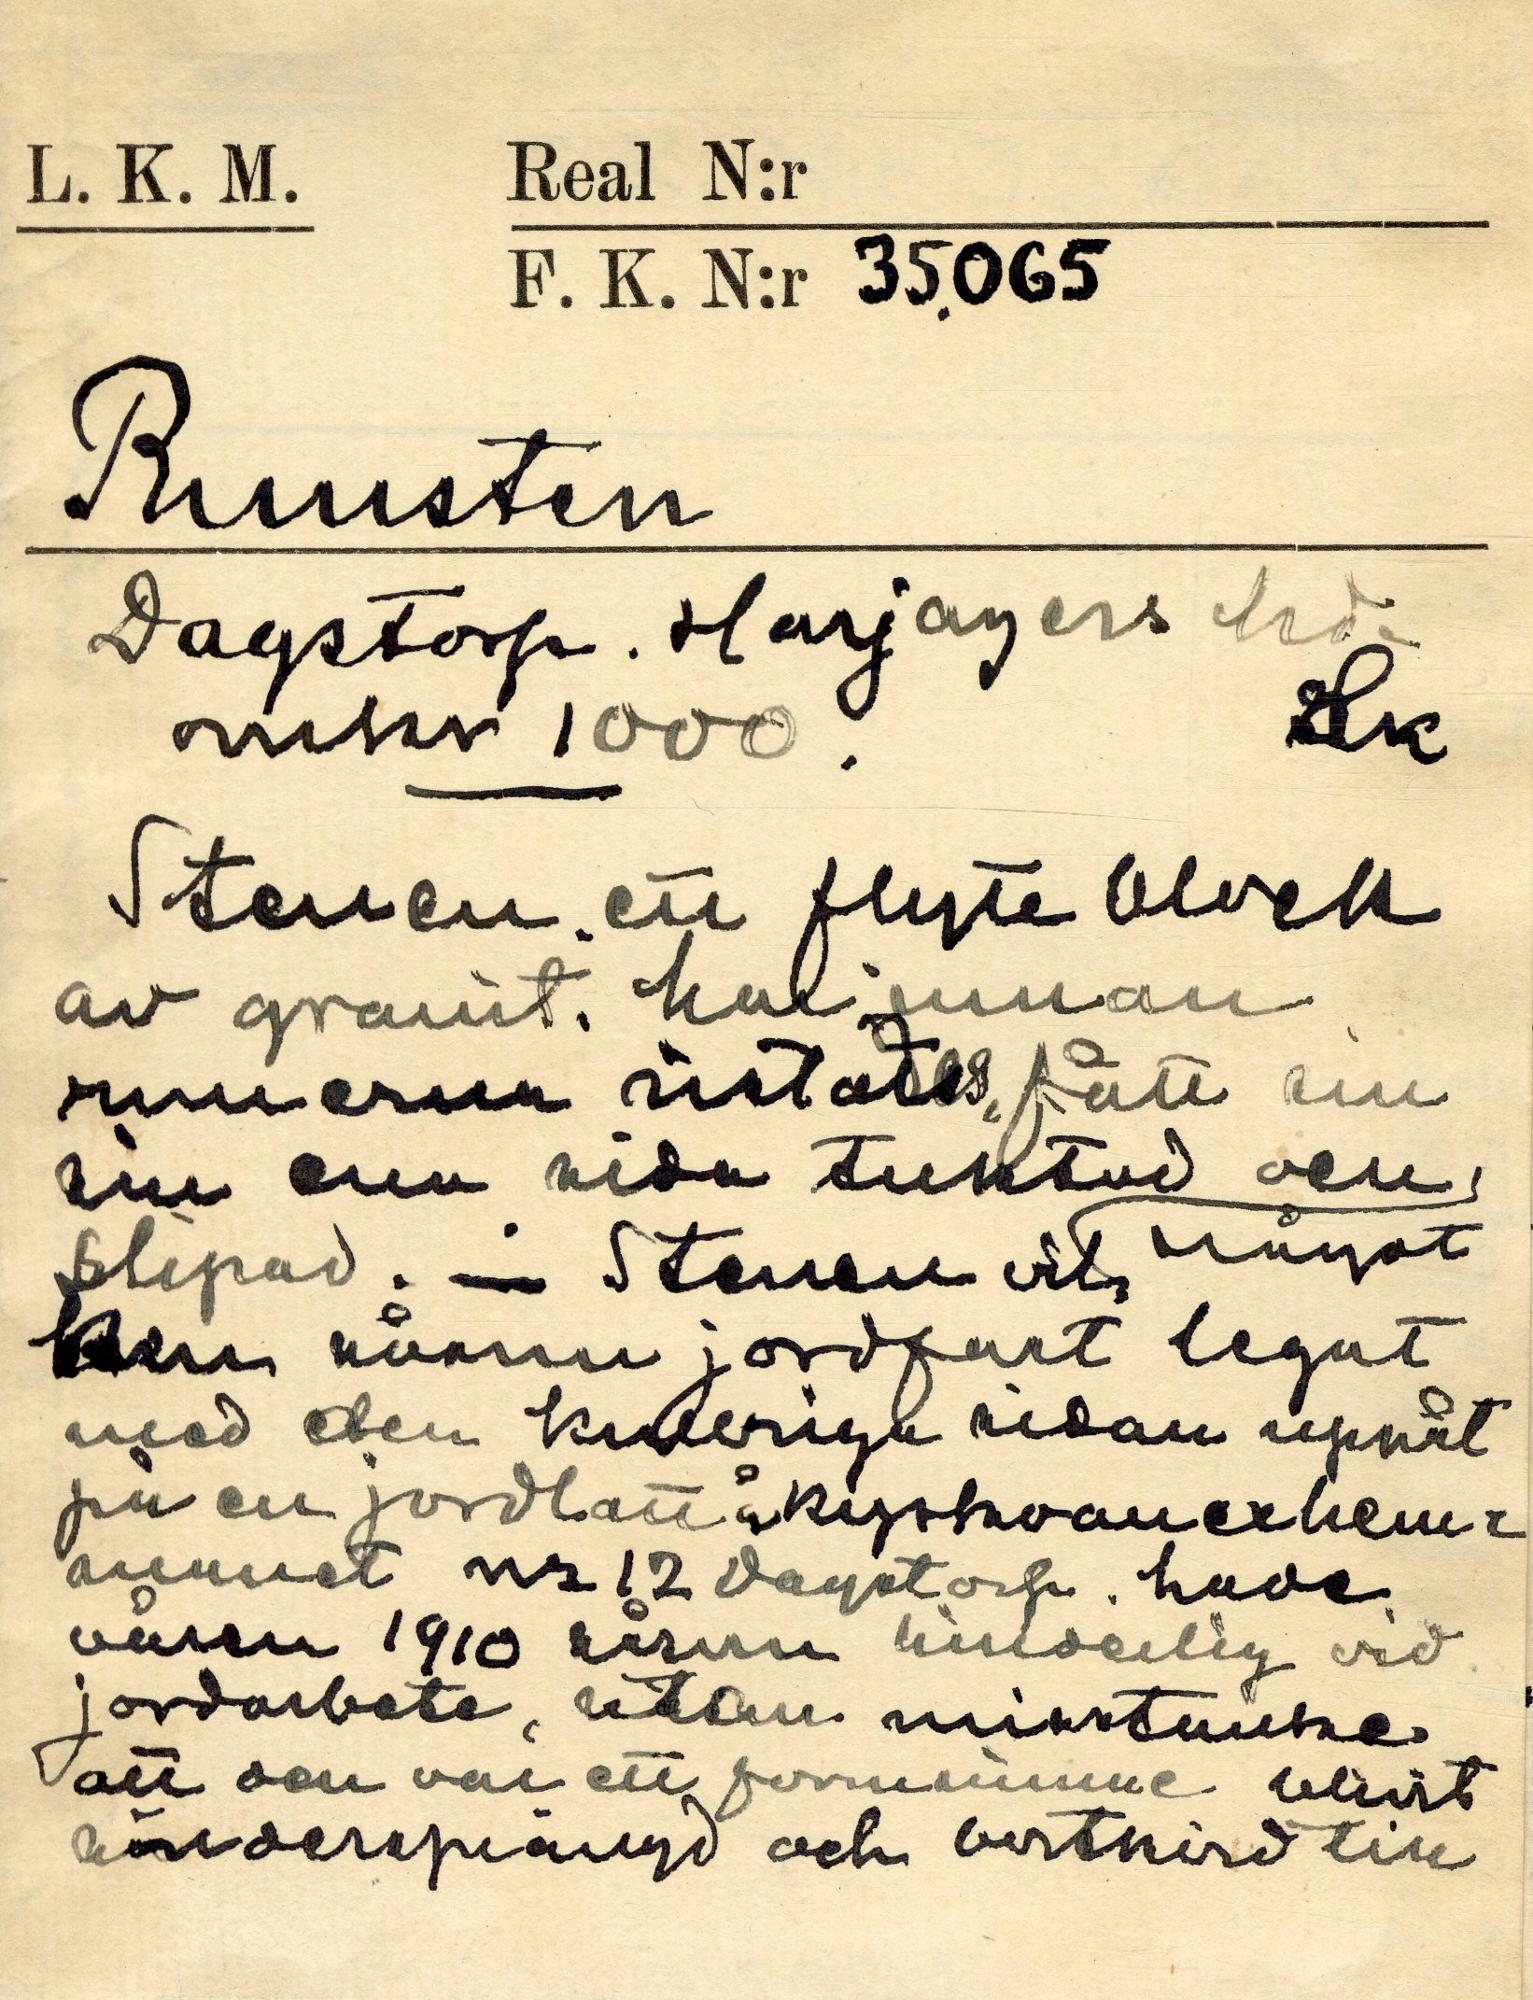 L. K. M. Real N:r
F. K. N:r 35.065
Runsten
Dagstorp. Harjagers hd.
omkr 1000. Sk
Stenen, ett flyttblock
av granit, har innan
runorna ristades, fått sin
ena sida tuktad och
slipad. — Stenen
något
som jordfast legat
med den kulleriga sidan uppåt
på en jordlott å kyrkvänerhem-
manet nr 12 Dagstorp. hade
våren 1910 såsom hinderlig vid
jordarbete, utan misstanke
att den var ett fornminne blivit
söndersprängd och bortkörd till